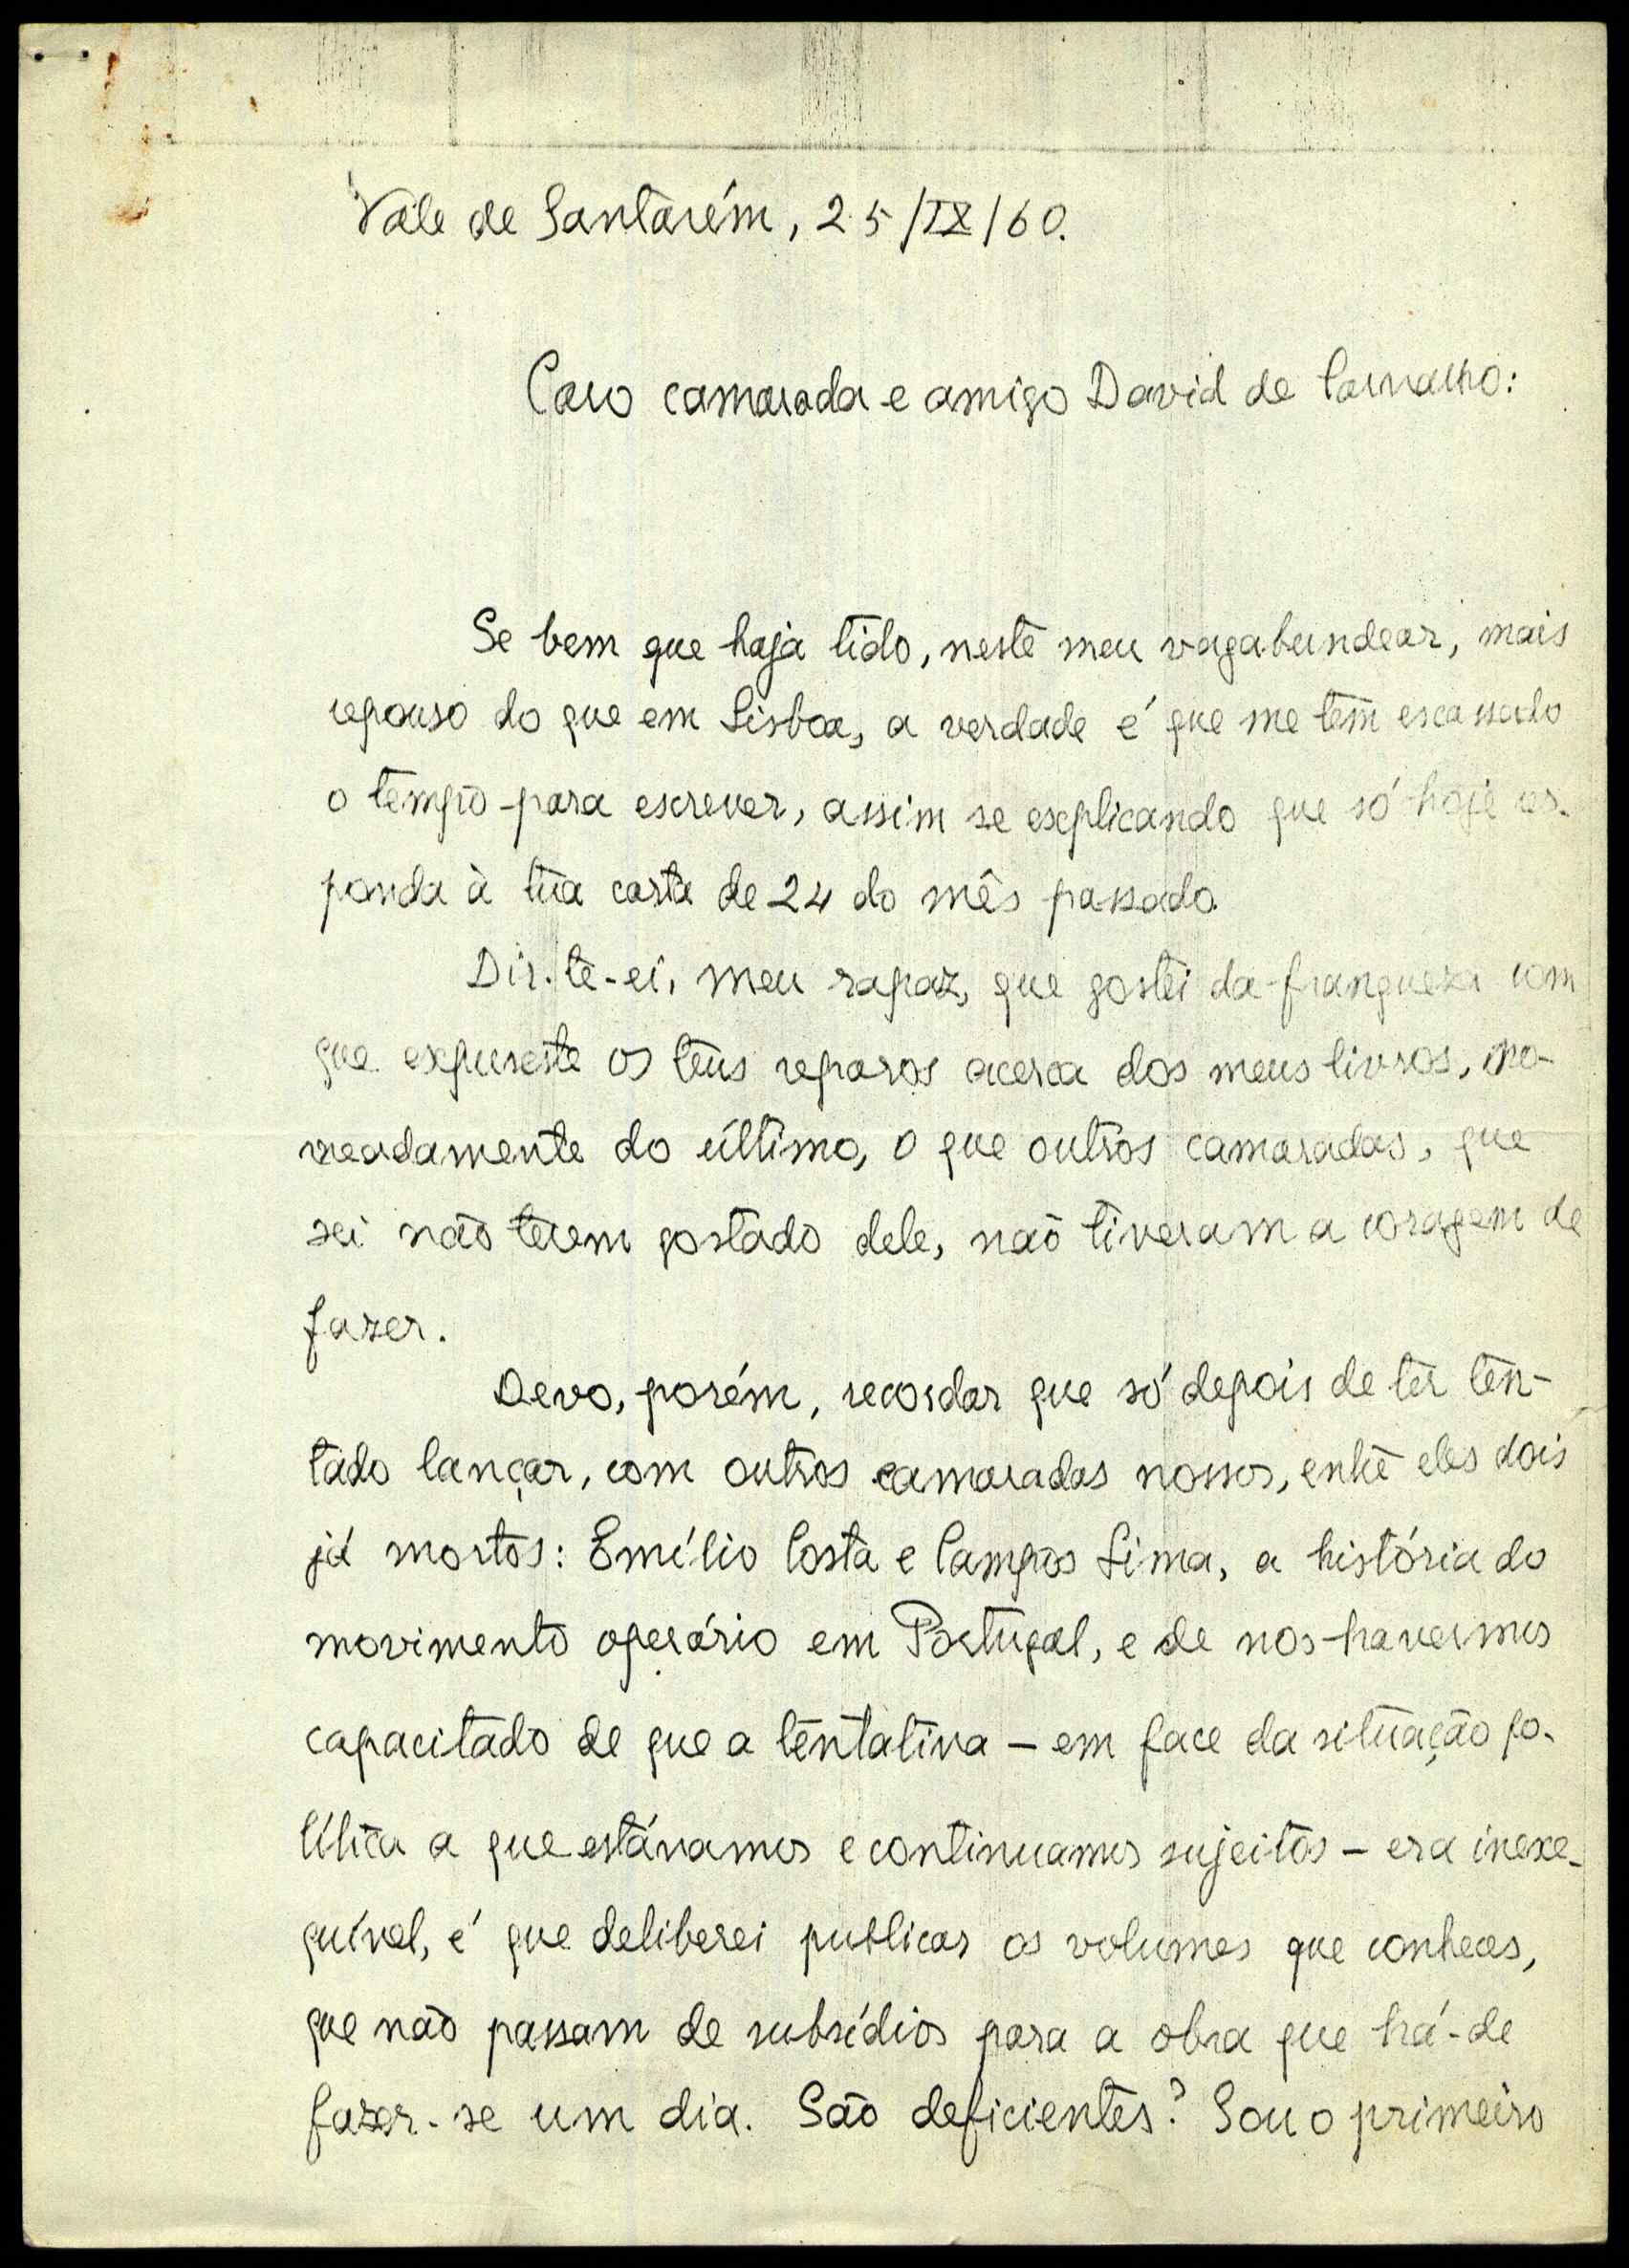 Vale de Santarém, 25/IX/60.
Caro camarada e amigo David de Carvalho:
Se bem que haja tido, neste meu vagabundear, mais
repouso do que em Lisboa, a verdade é que me tem escassado
o tempo para escrever, assim se explicando que só hoje res-
ponda à tua carta de 24 do mês passado.
Dir-te-ei, meu rapaz, que gostei da franqueza com
que expuseste os teus reparos acerca dos meus livros, no-
meadamente do último, o que outros camaradas, que
sei não terem gostado dele, não tiveram a coragem de
fazer.
Devo, porém, recordar que só depois de ter ten-
tado lançar, com outros camaradas nossos, entre eles dois
já mortos: Emílio Costa e Campos Lima, a história do
movimento operário em Portugal, e de nos havermos
capacitado de que a tentativa - em face da situação po-
lítica a que estávamos e continuamos sujeitos - era inexe-
quível, é que deliberei publicar os volumes que conheces,
que não passam de subsídios para a obra que há-de
fazer-se um dia. São deficientes? Sou o primeiro